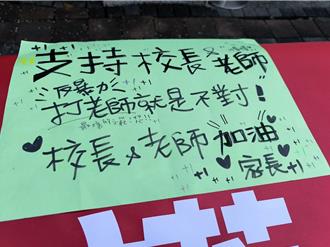 支持校長&老師
反暴力
打老師就是不對!
校長&老師加油
家長
+1 +1 +1